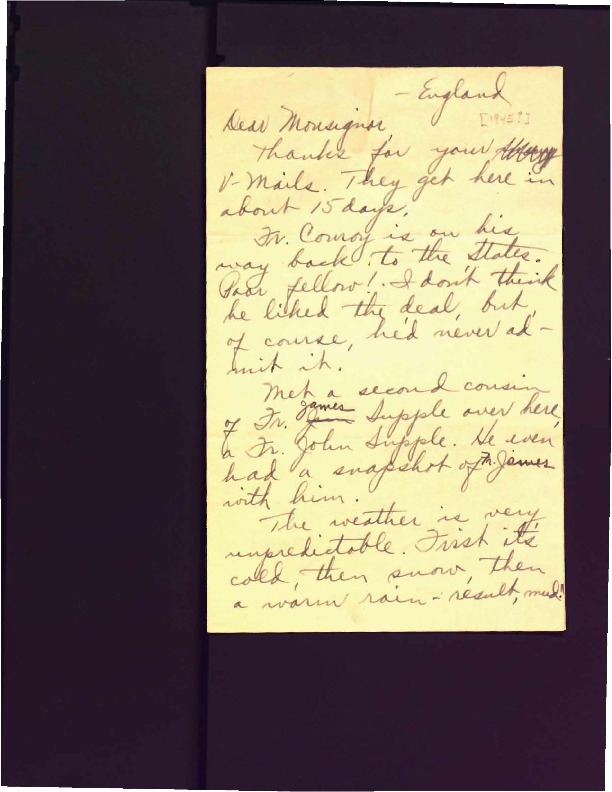 - England
[1945?]
Dear Monsignor,
Thanks for your
V-Mails. They get here in
about 15 days.
Fr. Conroy is on his
way back to the States.
Poor fellow! I don't think
he liked the deal, but,
of course, he'd never ad-
mit it.
Met a second cousin
of Fr. James Supple over here,
a Fr. John Supple. He even
had a snapshot of Fr. James
with him.
The weather is very
unpredictable. First it's
cold, then snow, then
a warm rain - result, mud!